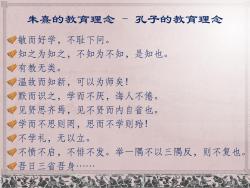 朱熹的教育理念 - 孔子的教育理念
敏而好学，不耻下问。
知之为知之，不知为不知，是知也。
有教无类。
温故而知新，可以为师矣！
默而识之，学而不厌，诲人不倦。
见贤思齐焉，见不贤而内自省也。
学而不思则罔，思而不学则殆！
不学礼，无以立。
不愤不启，不悱不发。举一隅不以三隅反，则不复也。
吾日三省吾身……